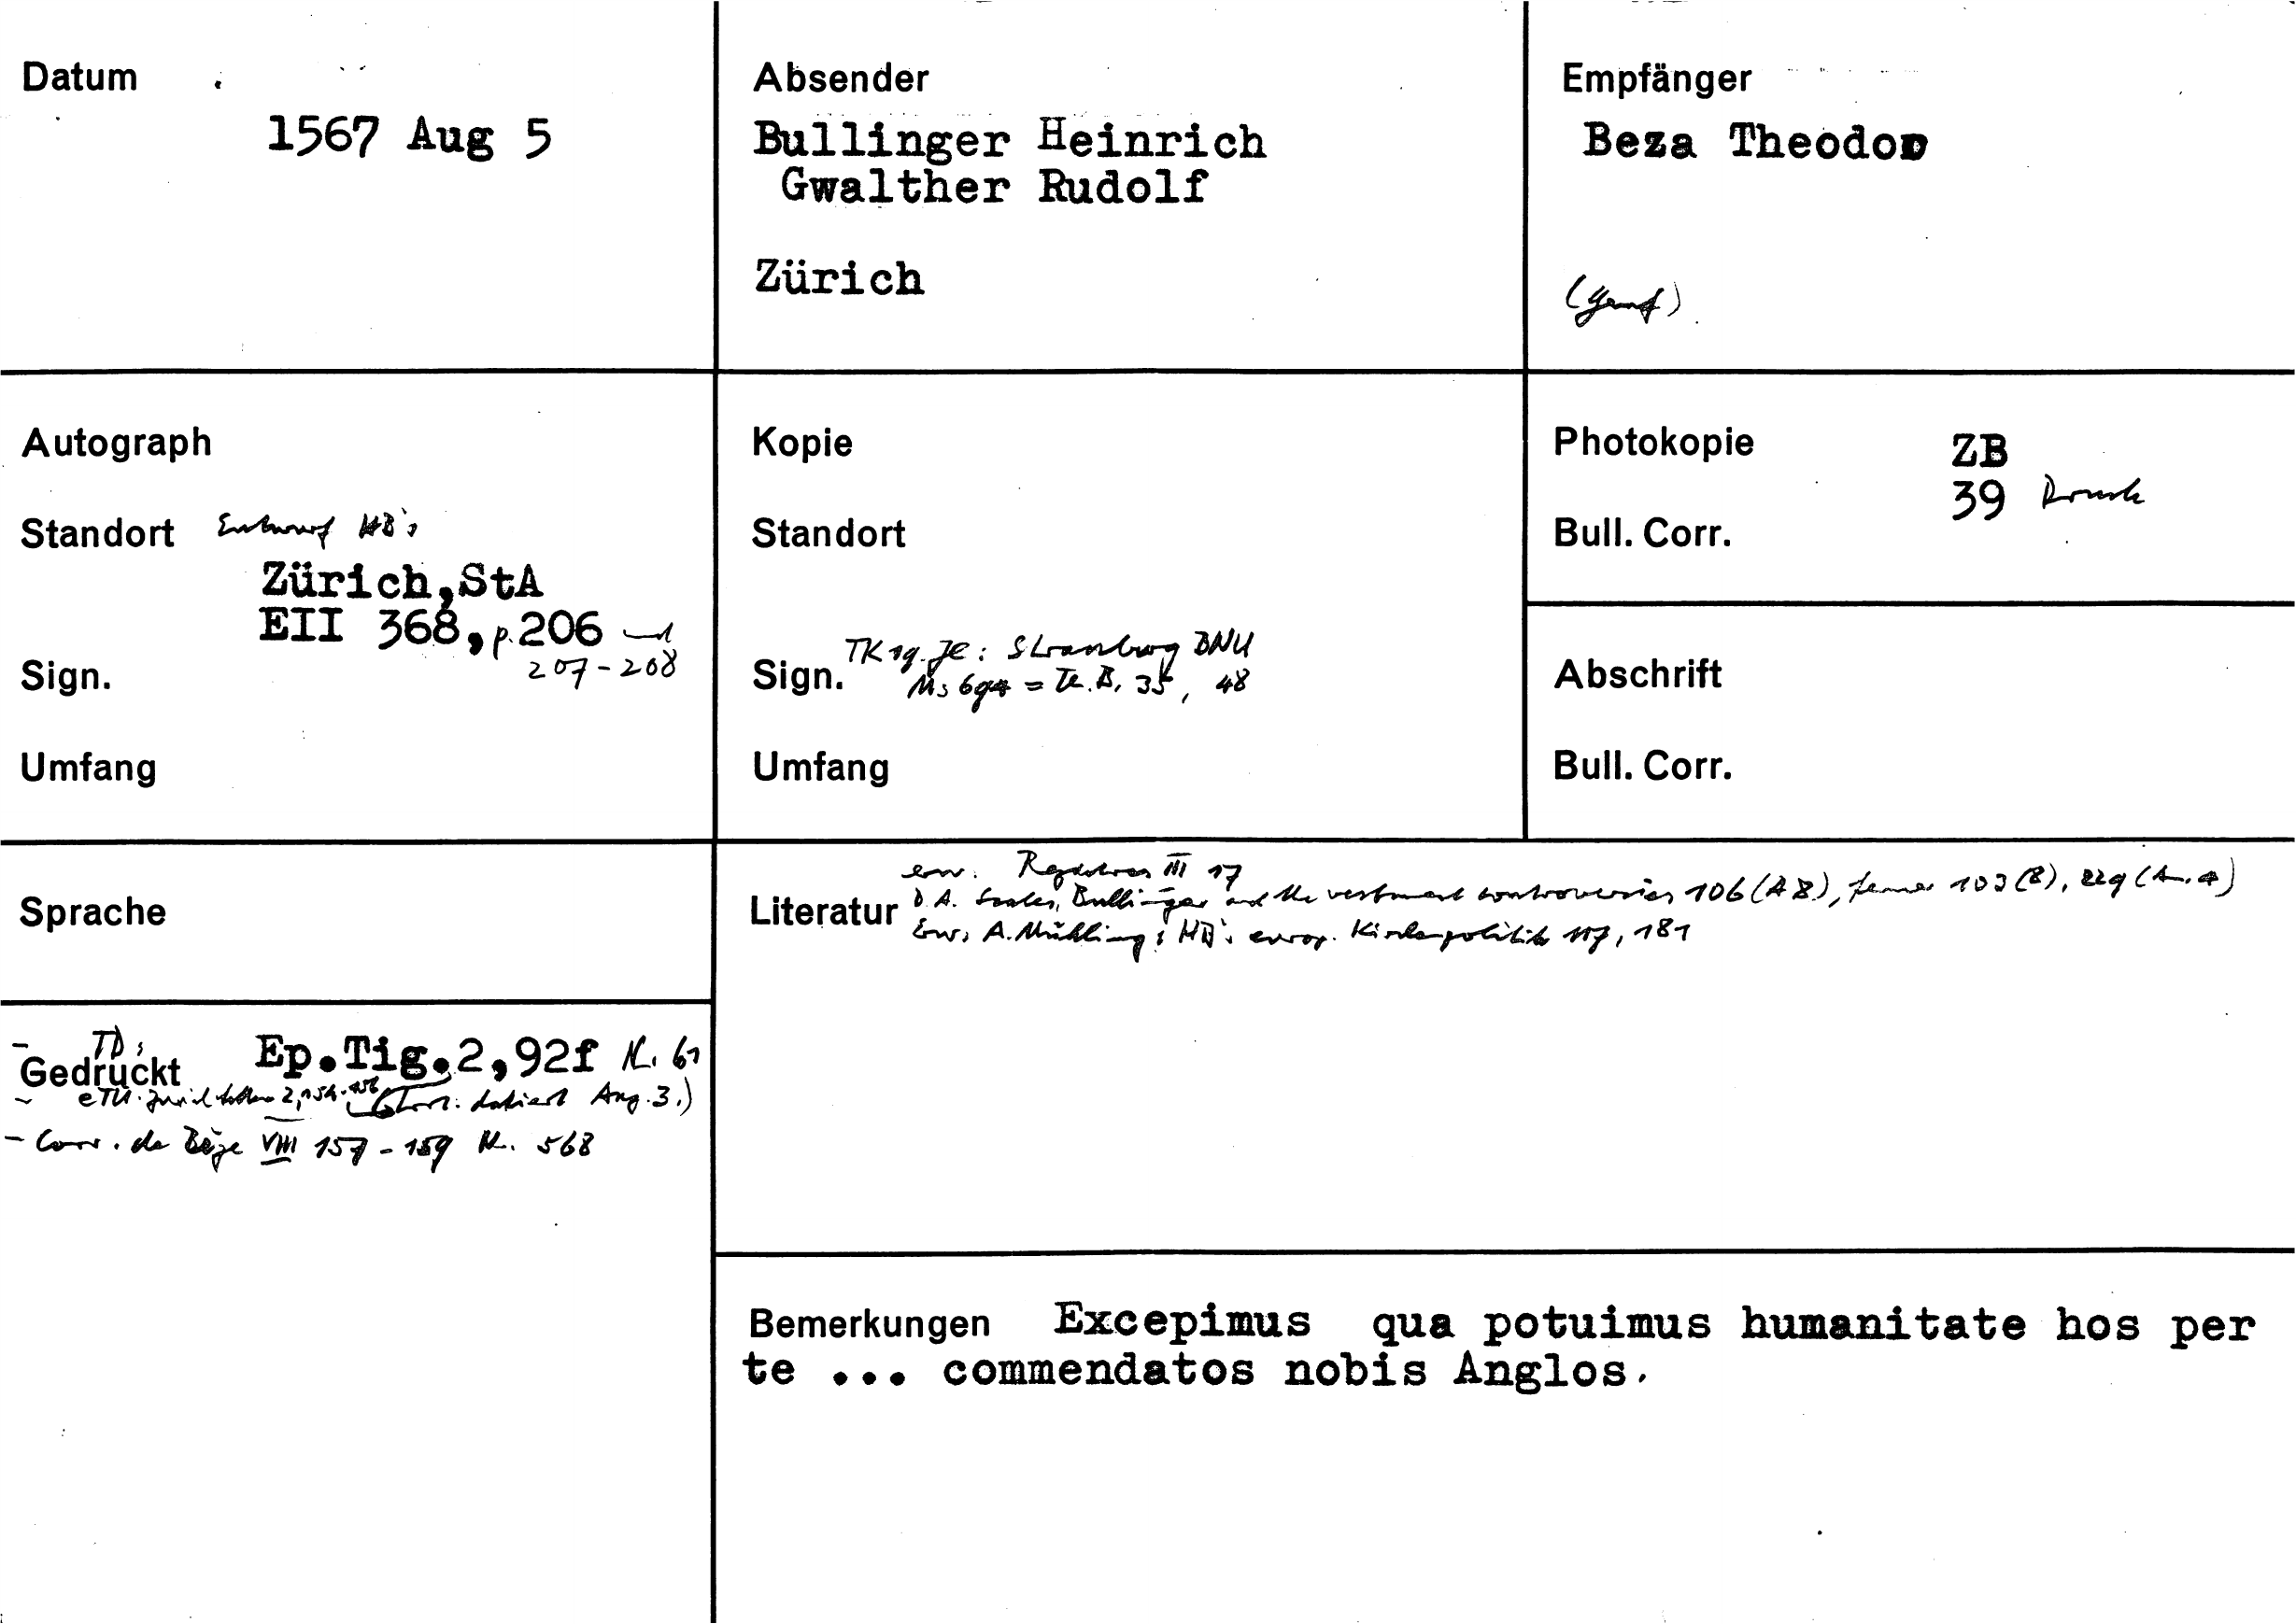 Datum
1567 Aug 5
Absender
Bullinger Heinrich
Gwalther Rudolf
Zürich
Empfänger
Beza Theodor
(Genf)
Autograph
Standort Entwurf HB's
Zürich, StA
EII 368, p. 206 und
207-208
Sign.
Umfang
Kopie
Standort
TK sg. Je: Strassburg BNU
Sign. Ms 694 = Te. B. 35, 48
Umfang
Photokopie ZB
39 Druck
Bull. Corr.
Abschrift
Bull. Corr.
Sprache
erw. Registres III 17
Literatur D. A. Scales, Bullinger and the vestment controversies 106 (A 8), ferner 103 (8), 229 (A. 4)
Erw. A. Mühling: HB's europ. Kirchenpolitik 117, 181
- TD:
Gedruckt Ep.Tig.2,92f N. 61
- eTU. Zurich letters 2, 154-156 datiert Aug. 3.)
- Corr. de Bèze VIII 157-159 N. 568
Bemerkungen Excepimus qua potuimus humanitate hos per
te ... commendatos nobis Anglos.